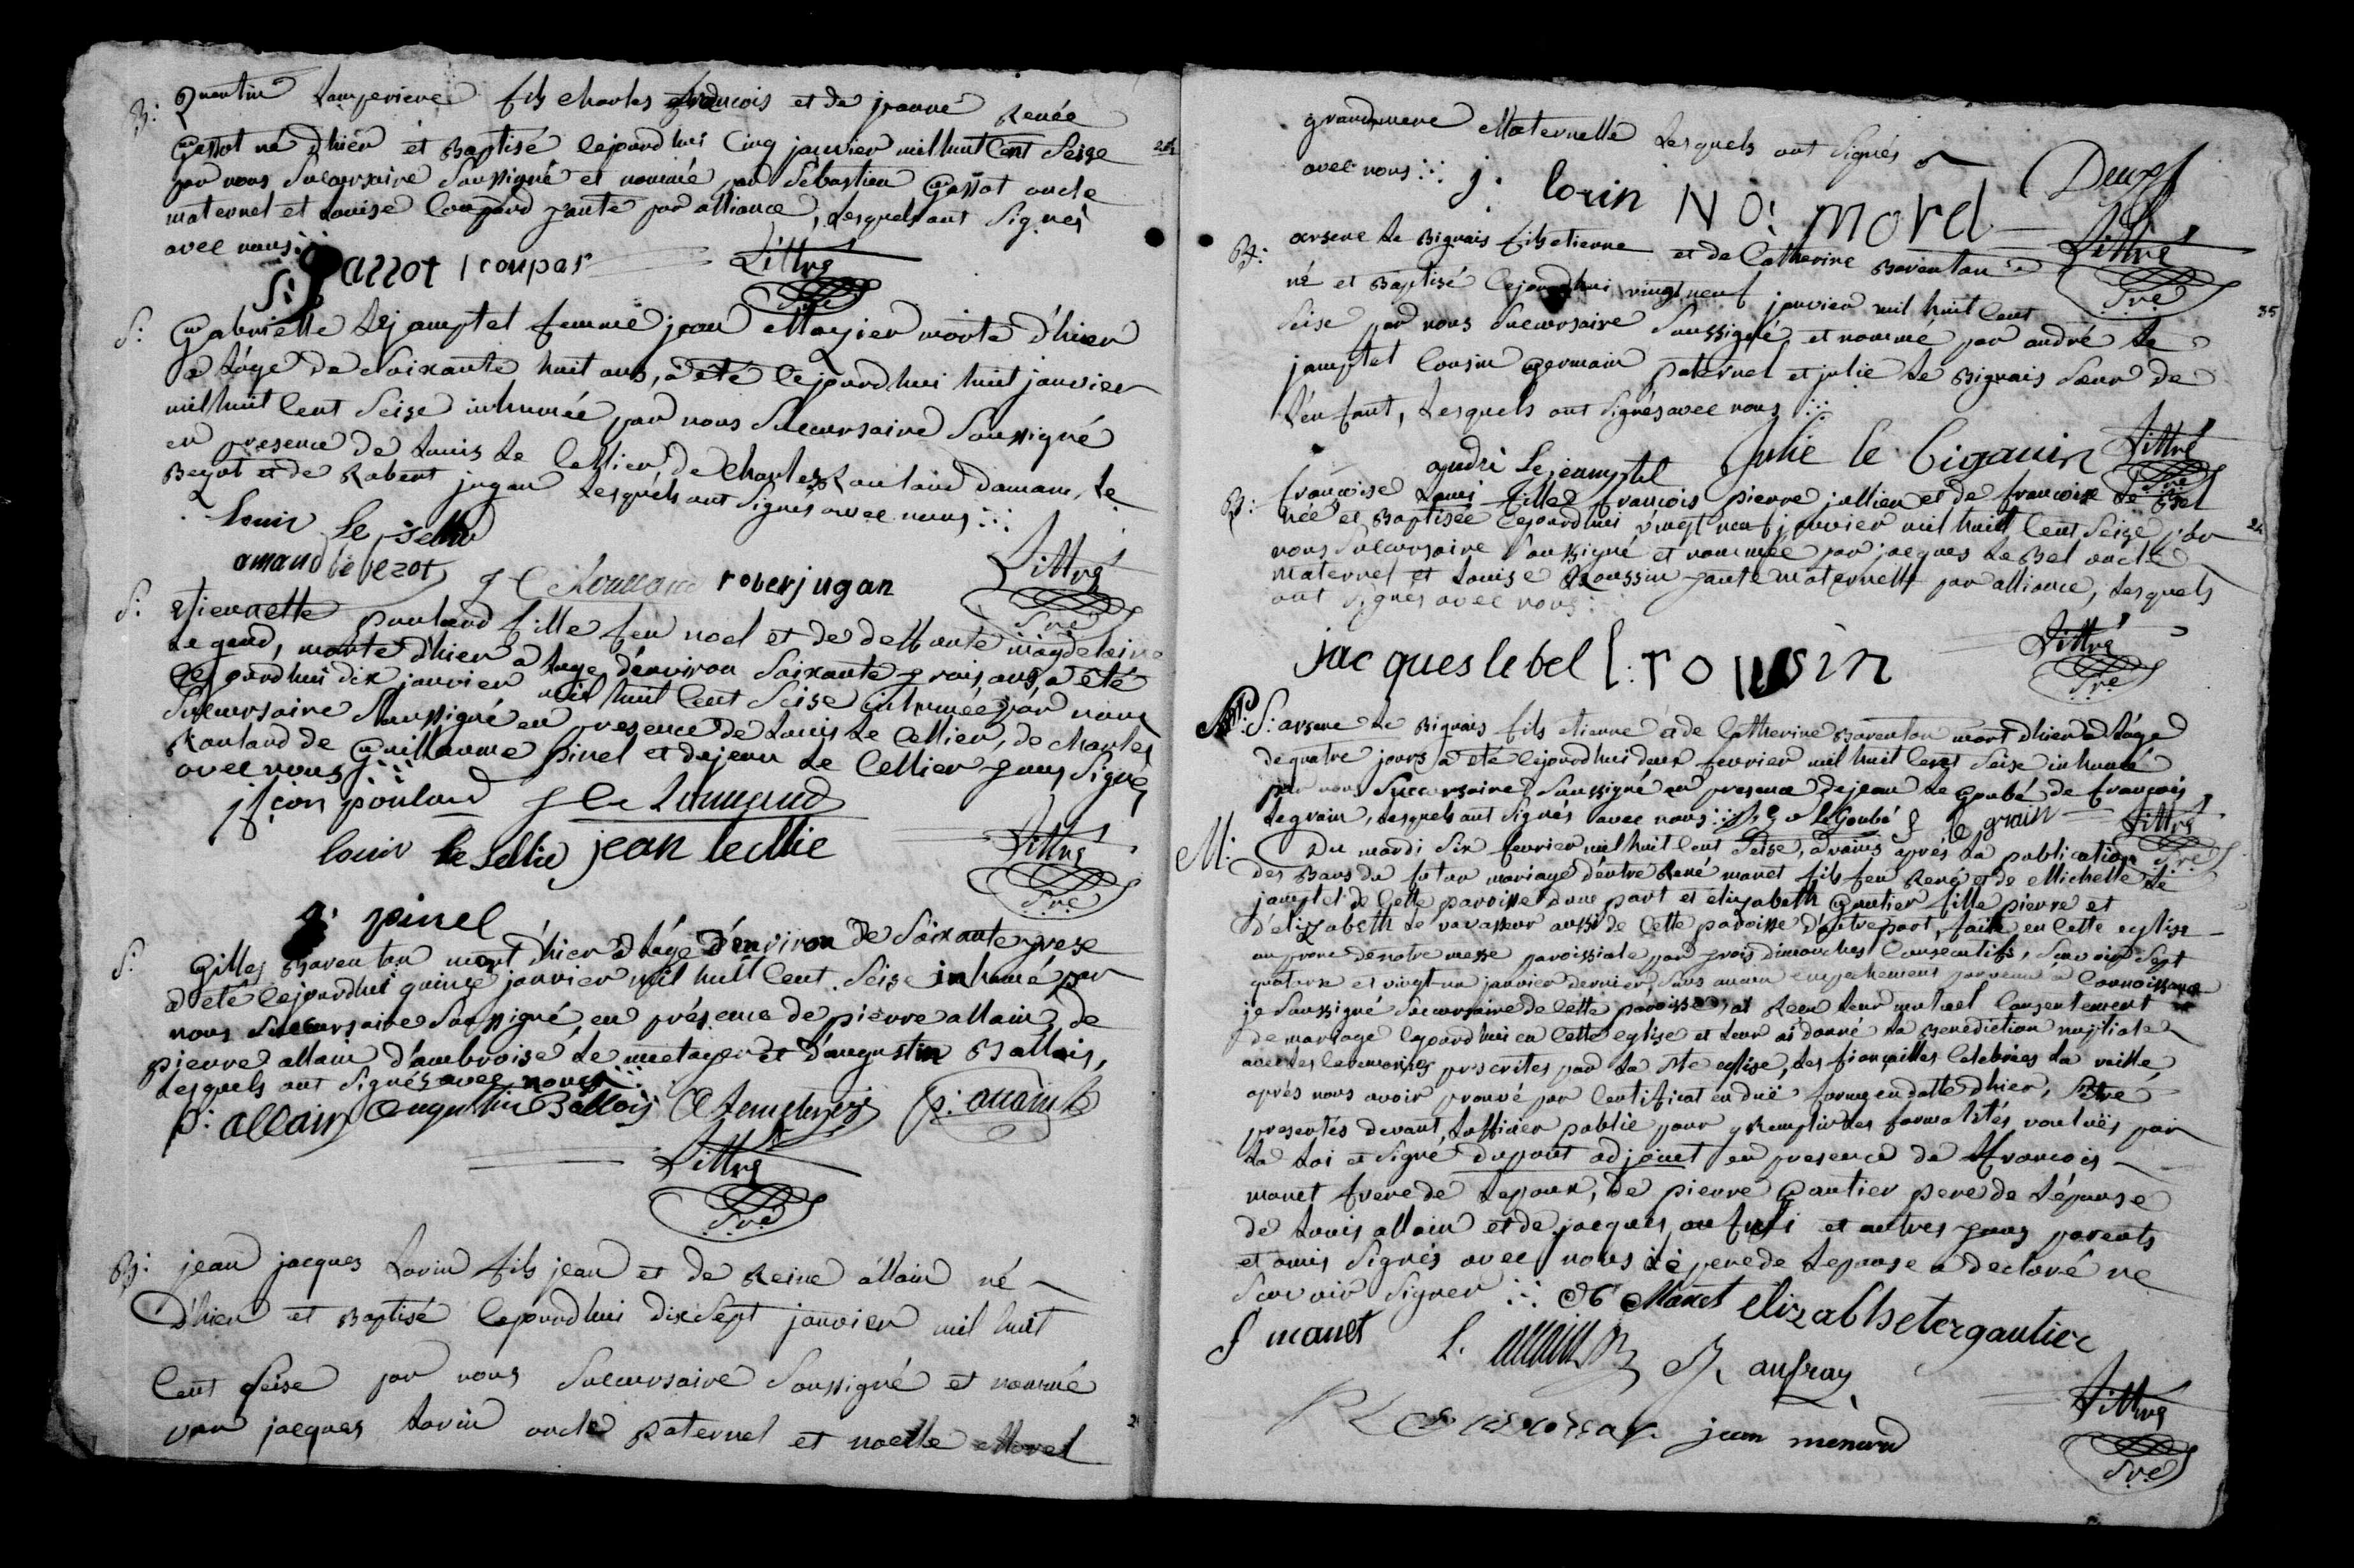 B: Quentin Lamperiere fils charles francois et de jeanne Renée
Gassot né d'hier et Baptisé cejourdhui Cinq janvier mil huit Cent Seize
par nous Succursaire Soussigné et nommé par Sebastien Gassot oncle
maternel et Louise Coupard tante par alliance, Lesquels ont Signés
avec nous
S: gassot l coupar Littré
Sre
S: Gabrielle Lejamptel femme jean morte d'hier
a L'age de Soixante huit ans, a été cejourdhui huit janvier
mil huit Cent Seise inhumée par nous Succursaire Soussigné
en presence de Louis Le Cellier, de Charles Rouland damam, Le
Bezot et de Robert jugan Lesquels ont Signés avec nous
Louis Le Sellier
amand le bezot roberjugan Littré
Sre
S: Etiennette poulard fille feu noel et de deffunte magdeleine
Le gend, morte d'hier a Lage d'environ Soixante trois ans a été
cejourdhui dix janvier mil huit Cent Seise inhumée par nous
Succursaire Soussigné en presence de Louis Le Cellier, de charles
Rouland de Guillaume pinel et de jean Le Cellier tous Signé
avec nous
poulard
louis le Sellier jean lecellie Littré
Sre
g: pinel
S: Gilles Baventon mort d'hier a L'age d'environ de Soixante treze
a été cejourdhui quinze janvier mil huit Cent Seise inhumé par
nous Succursaire Soussigné, en présence de pierre allain, de
pierre allain d'ambroise Le metayer et d'augustin Ballois,
Lesquels ont Signés avec nous
p: allain augustin Ballois p: allain
Littré
Sre
B: jean jacques Lorin fils jean et de Reine allain né
D'hier et Baptisé Cejourdhui dix Sept janvier mil huit
Cent Seise par nous Succursaire Soussigné et nommé
par jacques Lorin oncle paternel et noelle Morel
grandmere Maternelle Lesquels ont Signés
avec nous j: lorin NO: morel
Littré
Sre
B: arsene Le Bignais fils etienne et de Catherine Baventon
né et Baptisé Cejourdhui vingt neuf janvier mil huit Cent
Seise par nous Succursaire Soussigné, et nommé par andré Le
jamptel Cousin Germain paternel et julie Le Bignais Sœur de
L'enfant, Lesquels ont Signés avec nous
andré Lejeamptel julie le bigauin Littré
Sre
B: françoise Louise fille francois pierre jullien et de francoise Le Bel
née et Baptisée Cejourdhui vingt neuf janvier mil huit Cent Seize par
nous Succursaire Soussigné et nommée par jacques Le Bel oncle
Maternel et Louise Roussin tante maternelle par alliance, Lesquels
ont Signés avec nous
jacques lebel l: rousin Littré
Sre
S: arsene Le Bignais fils etienne et de Catherine Baventon mort d'hier a L'age
de quatre jours a été Cejourdhui deux fevrier mil huit Cent Seise inhumé
par nous Succursaire Soussigné en presence de jean Le Goubé de francois
Legrain, Lesquels ont Signés avec nous le Goubé f le grain Littré
Sre
M: Du mardi Six fevrier mil huit Cent Seise, après La publication
des Bans du futur mariage d'entre René manet fils feu René et de Michelle Le
jamptel de Cette paroisse dune part et elizabeth Gautier fille pierre et
d'elizabeth Le vavasseur aussi de Cette paroisse d'autre part, faite en Cette eglise
au prone de notre messe paroissiale par trois dimanches Consecutifs, Scavoir Sept
quatorze et vingt un janvier dernier, Sans aucun empechement parvenu a Connoissance
je Soussigné Succursaire de Cette paroisse, ai Reçu Leur mutuel Consentement
de mariage Cejourdhui en Cette eglise et Leur ai donné La Benediction nuptiale
avec Les Ceremonies prescrites par La Ste eglise, Les fiançailles Celebrées La veille
aprés nous avoir prouvé par Certificat en duë forme en datte d'hier, S'etre
presentés devant L'officier public pour y Remplir Les formalités voulües par
La Loi et Signé Dupont adjoint en presence de francois
manet frere de Lepoux, de pierre Gautier pere de L'épouse
de Louis allain et de jacques aufrai et autres tous parents
et amis Signés avec nous Le pere de Lepouse a declaré ne
Scavoir Signer Manet elizabhetergautier
f manet l. allain aufray
jean menard Littré
Sre